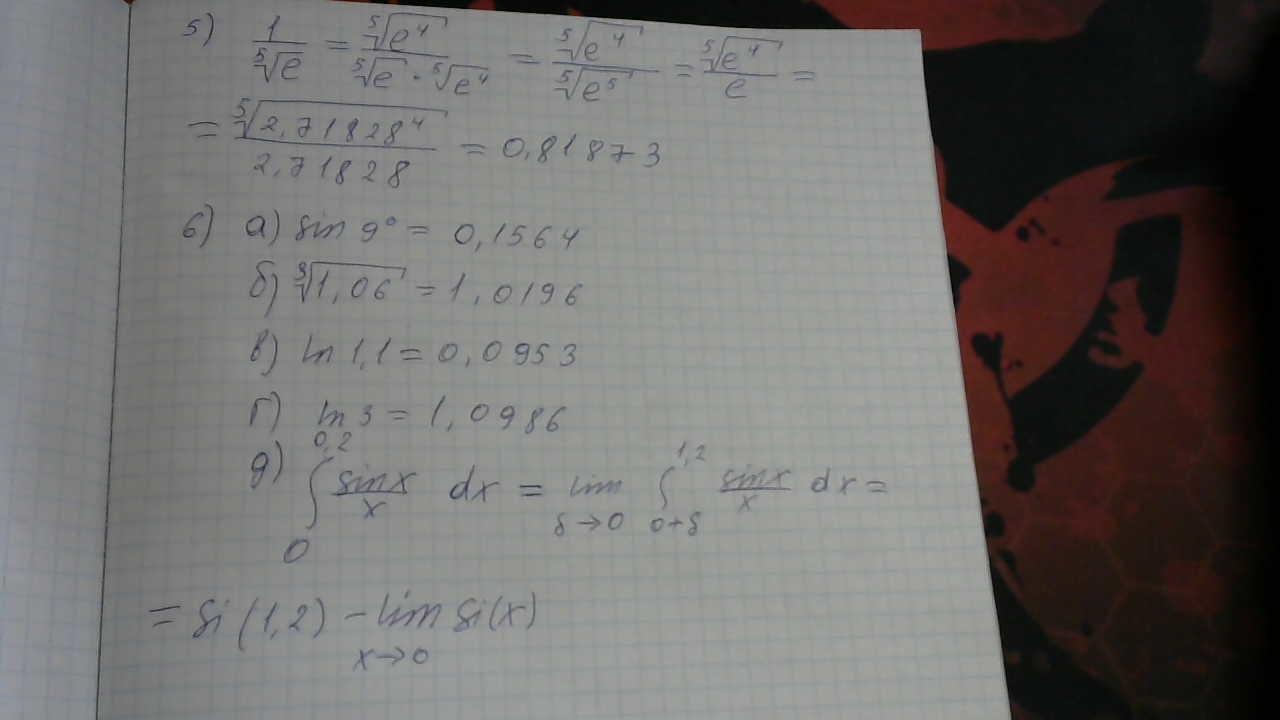 5) 1/⁵√e = ⁵√e⁴/(⁵√e · ⁵√e⁴) = ⁵√e⁴/⁵√e⁵ = ⁵√e⁴/e =
= ⁵√2,71828⁴/2,71828 = 0,81873
6) а) sin 9° = 0,1564
б) ³√1,06 = 1,0196
в) ln 1,1 = 0,0953
г) ln 3 = 1,0986
д) ∫₀^0,2 sinx/x dx = lim δ→0 ∫_0+δ^1,2 sinx/x dx =
= Si(1,2) - lim x→0 Si(x)